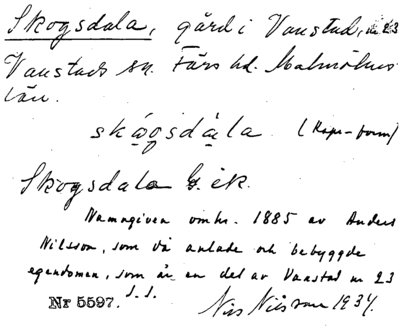 Skogsdala, gård i Vanstad, nr 23
Vanstads sn. Färs hd. Malmöhus
län.
skågsdala (Kaps-form)
Skogsdala G. ek.
Namngiven omkr. 1885 av Anders
Nilsson, som då anlade och bebyggde
egendomen, som är en del av Vanstad nr 23
Nr 5597. s.s. Nils Nilsson 1934.